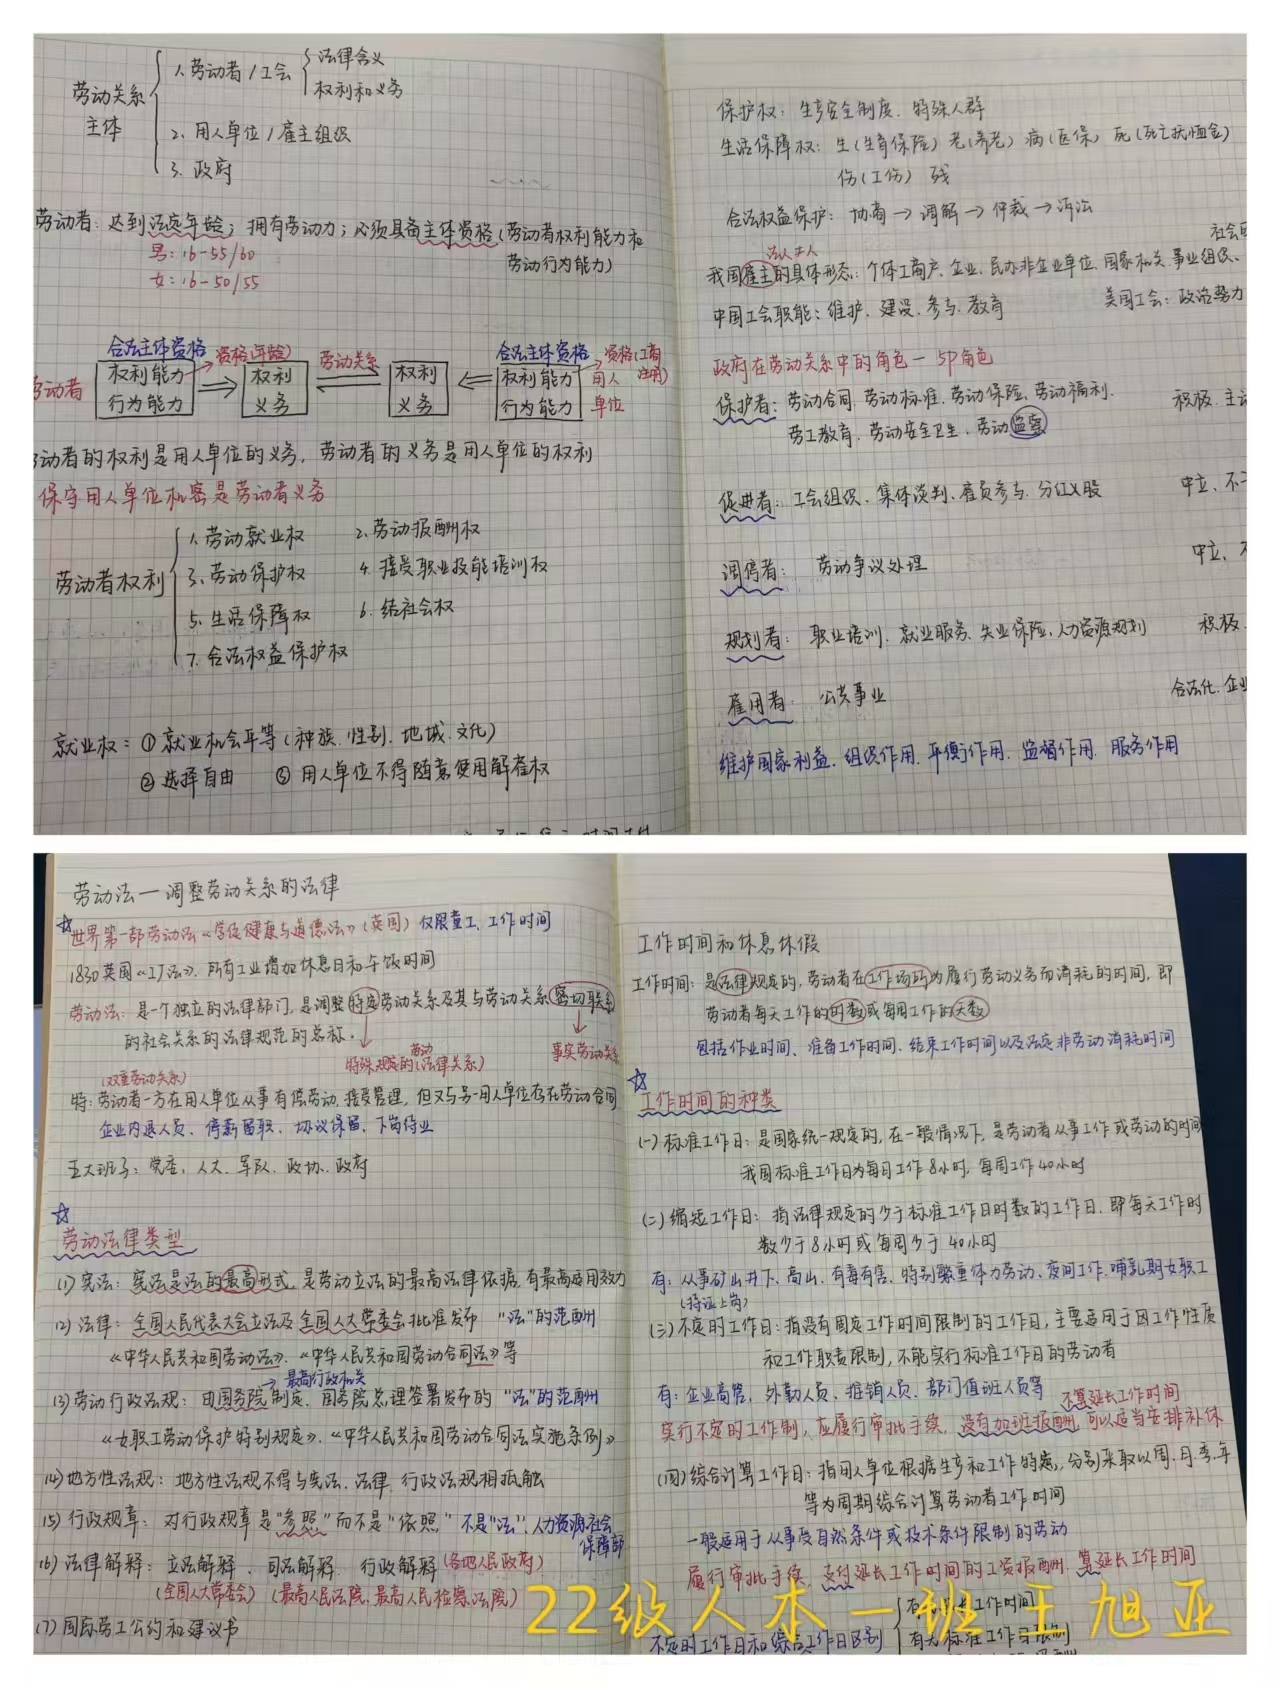 劳动关系主体
1. 劳动者/工会
法律含义
权利和义务
2. 用人单位/雇主组织
3. 政府
劳动者: 达到法定年龄; 拥有劳动力; 必须具备主体资格(劳动者权利能力和
劳动行为能力)
男: 16-55/60
女: 16-50/55
合法主体资格 资格(年龄) 劳动关系 合法主体资格 资格(工商
劳动者 权利能力 权利 权利 权利能力 用人
行为能力 义务 义务 行为能力 单位
动者的权利是用人单位的义务, 劳动者的义务是用人单位的权利
保守用人单位机密是劳动者义务
劳动者权利
1. 劳动就业权 2. 劳动报酬权
3. 劳动保护权 4. 接受职业技能培训权
5. 生活保障权 6. 结社会权
7. 合法权益保护权
就业权: ① 就业机会平等(种族、性别、地域、文化)
② 选择自由 ③ 用人单位不得随意使用解雇权
保护权: 生产安全制度、特殊人群
生活保障权: 生(生育保险) 老(养老) 病(医保) 死(死亡抚恤金)
伤(工伤) 残
合法权益保护: 协商→调解→仲裁→诉讼
我国雇主的具体形态: 个体工商户、企业、民办非企业单位、国家机关、事业组织、
社会
中国工会职能: 维护、建设、参与、教育 美国工会: 政治势力
政府在劳动关系中的角色—5P角色
保护者: 劳动合同、劳动标准、劳动保险、劳动福利、 积极、主
劳工教育、劳动安全卫生、劳动监察
促进者: 工会组织、集体谈判、雇员参与、分红入股 中立、不
调停者: 劳动争议处理 中立、
规划者: 职业培训、就业服务、失业保险、人力资源规划 积极、
雇用者: 公共事业 合法化、企业
维护国家利益、组织作用、平衡作用、监督作用、服务作用
劳动法—调整劳动关系的法律
☆世界第一部劳动法《学徒健康与道德法》(英国) 仅限童工、工作时间
1830英国《工厂法》、所有工业增加休息日和午饭时间
劳动法: 是一个独立的法律部门, 是调整特定劳动关系及其与劳动关系密切联系
的社会关系的法律规范的总称.
特殊规定的(劳动法律关系) 事实劳动关系
(双重劳动关系)
特: 劳动者一方在用人单位从事有偿劳动, 接受管理, 但又与另一用人单位存在劳动合同
企业内退人员、停薪留职、协议保留、下岗待业
五大班子: 党委、人大、军队、政协、政府
☆
劳动法律类型
(1) 宪法: 宪法是法的最高形式, 是劳动立法的最高法律依据, 有最高适用效力
(2) 法律: 全国人民代表大会立法及全国人大常委会批准发布 "法"的范畴
《中华人民共和国劳动法》、《中华人民共和国劳动合同法》等
→最高行政机关
(3) 劳动行政法规: 由国务院制定、国务院总理签署发布的 "法"的范畴
《女职工劳动保护特别规定》、《中华人民共和国劳动合同法实施条例》
(4) 地方性法规: 地方性法规不得与宪法、法律、行政法规相抵触
(5) 行政规章: 对行政规章是"参照"而不是"依照" 不是"法", 人力资源社会
保障部
(6) 法律解释: 立法解释、司法解释、行政解释(各地人民政府)
(全国人大常委会) (最高人民法院、最高人民检察法院)
(7) 国际劳工公约和建议书
工作时间和休息休假
工作时间: 是法律规定的, 劳动者在工作场所为履行劳动义务而消耗的时间, 即
劳动者每天工作的时数或每周工作的天数
包括作业时间、准备工作时间、结束工作时间以及法定非劳动消耗时间
☆
工作时间的种类
(一) 标准工作日: 是国家统一规定的, 在一般情况下, 是劳动者从事工作或劳动的时间
我国标准工作日为每日工作8小时, 每周工作40小时
(二) 缩短工作日: 指法律规定的少于标准工作日时数的工作日, 即每天工作时
数少于8小时或每周少于40小时
有: 从事矿山井下、高山、有毒有害、特别繁重体力劳动、夜间工作、哺乳期女职工
(持证上岗)
(三) 不定时工作日: 指没有固定工作时间限制的工作日, 主要适用于因工作性质
和工作职责限制, 不能实行标准工作日的劳动者
有: 企业高管、外勤人员、推销人员、部门值班人员等 不算延长工作时间
实行不定时工作制, 应履行审批手续, 没有加班报酬, 可以适当安排补休
(四) 综合计算工作日: 指用人单位根据生产和工作特点, 分别采取以周、月、季、年
等为周期综合计算劳动者工作时间
一般适用于从事受自然条件或技术条件限制的劳动
履行审批手续, 支付延长工作时间的工资报酬, 算延长工作时间
不定时工作日和综合工作日区别
工作时间
有无标准工作日限制
22级人本一班王旭亚